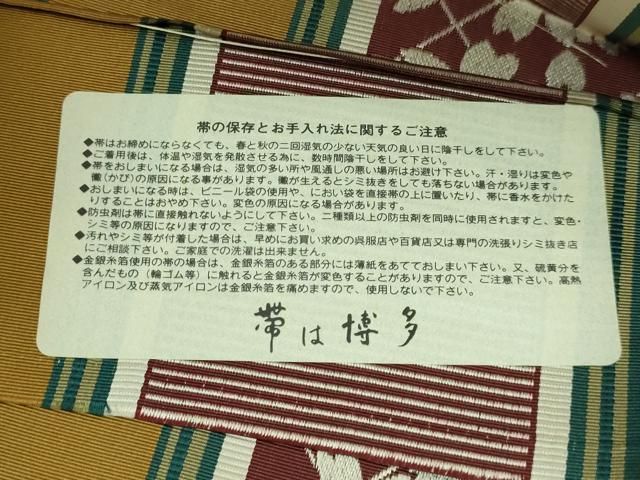 帯の保存とお手入れ法に関するご注意
◆帯はお締めにならなくても、春と秋の二回湿気の少ない天気の良い日に陰干しをして下さい。
◆ご着用後は、体温や湿気を発散させる為に、数時間陰干しをして下さい。
◆帯をおしまいになる場合は、湿気の多い所や風通しの悪い場所はお避け下さい。汗・湿りは変色や
黴(かび)の原因になる事があります。黴が生えるとシミ抜きをしても落ちない場合があります。
◆おしまいになる時は、ビニール袋の使用や、におい袋を直接帯の上に置いたり、帯に香水をかけた
りすることはおやめ下さい。変色の原因になる場合があります。
◆防虫剤は帯に直接触れないようにして下さい。二種類以上の防虫剤を同時に使用されますと、変色・
シミ等の原因になりますので、ご注意下さい。
◆汚れやシミ等が付着した場合は、早めにお買い求めの呉服店や百貨店又は専門の洗張りシミ抜き店
にご相談下さい。ご家庭での洗濯は出来ません。
◆金銀糸箔使用の帯の場合は、金銀糸箔のある部分には薄紙をあてておしまい下さい。又、硫黄分を
含んだもの(輪ゴム等)に触れると金銀糸箔が変色することがありますので、ご注意下さい。高熱
アイロン及び蒸気アイロンは金銀糸箔を痛めますので、使用しないで下さい。
帯は博多